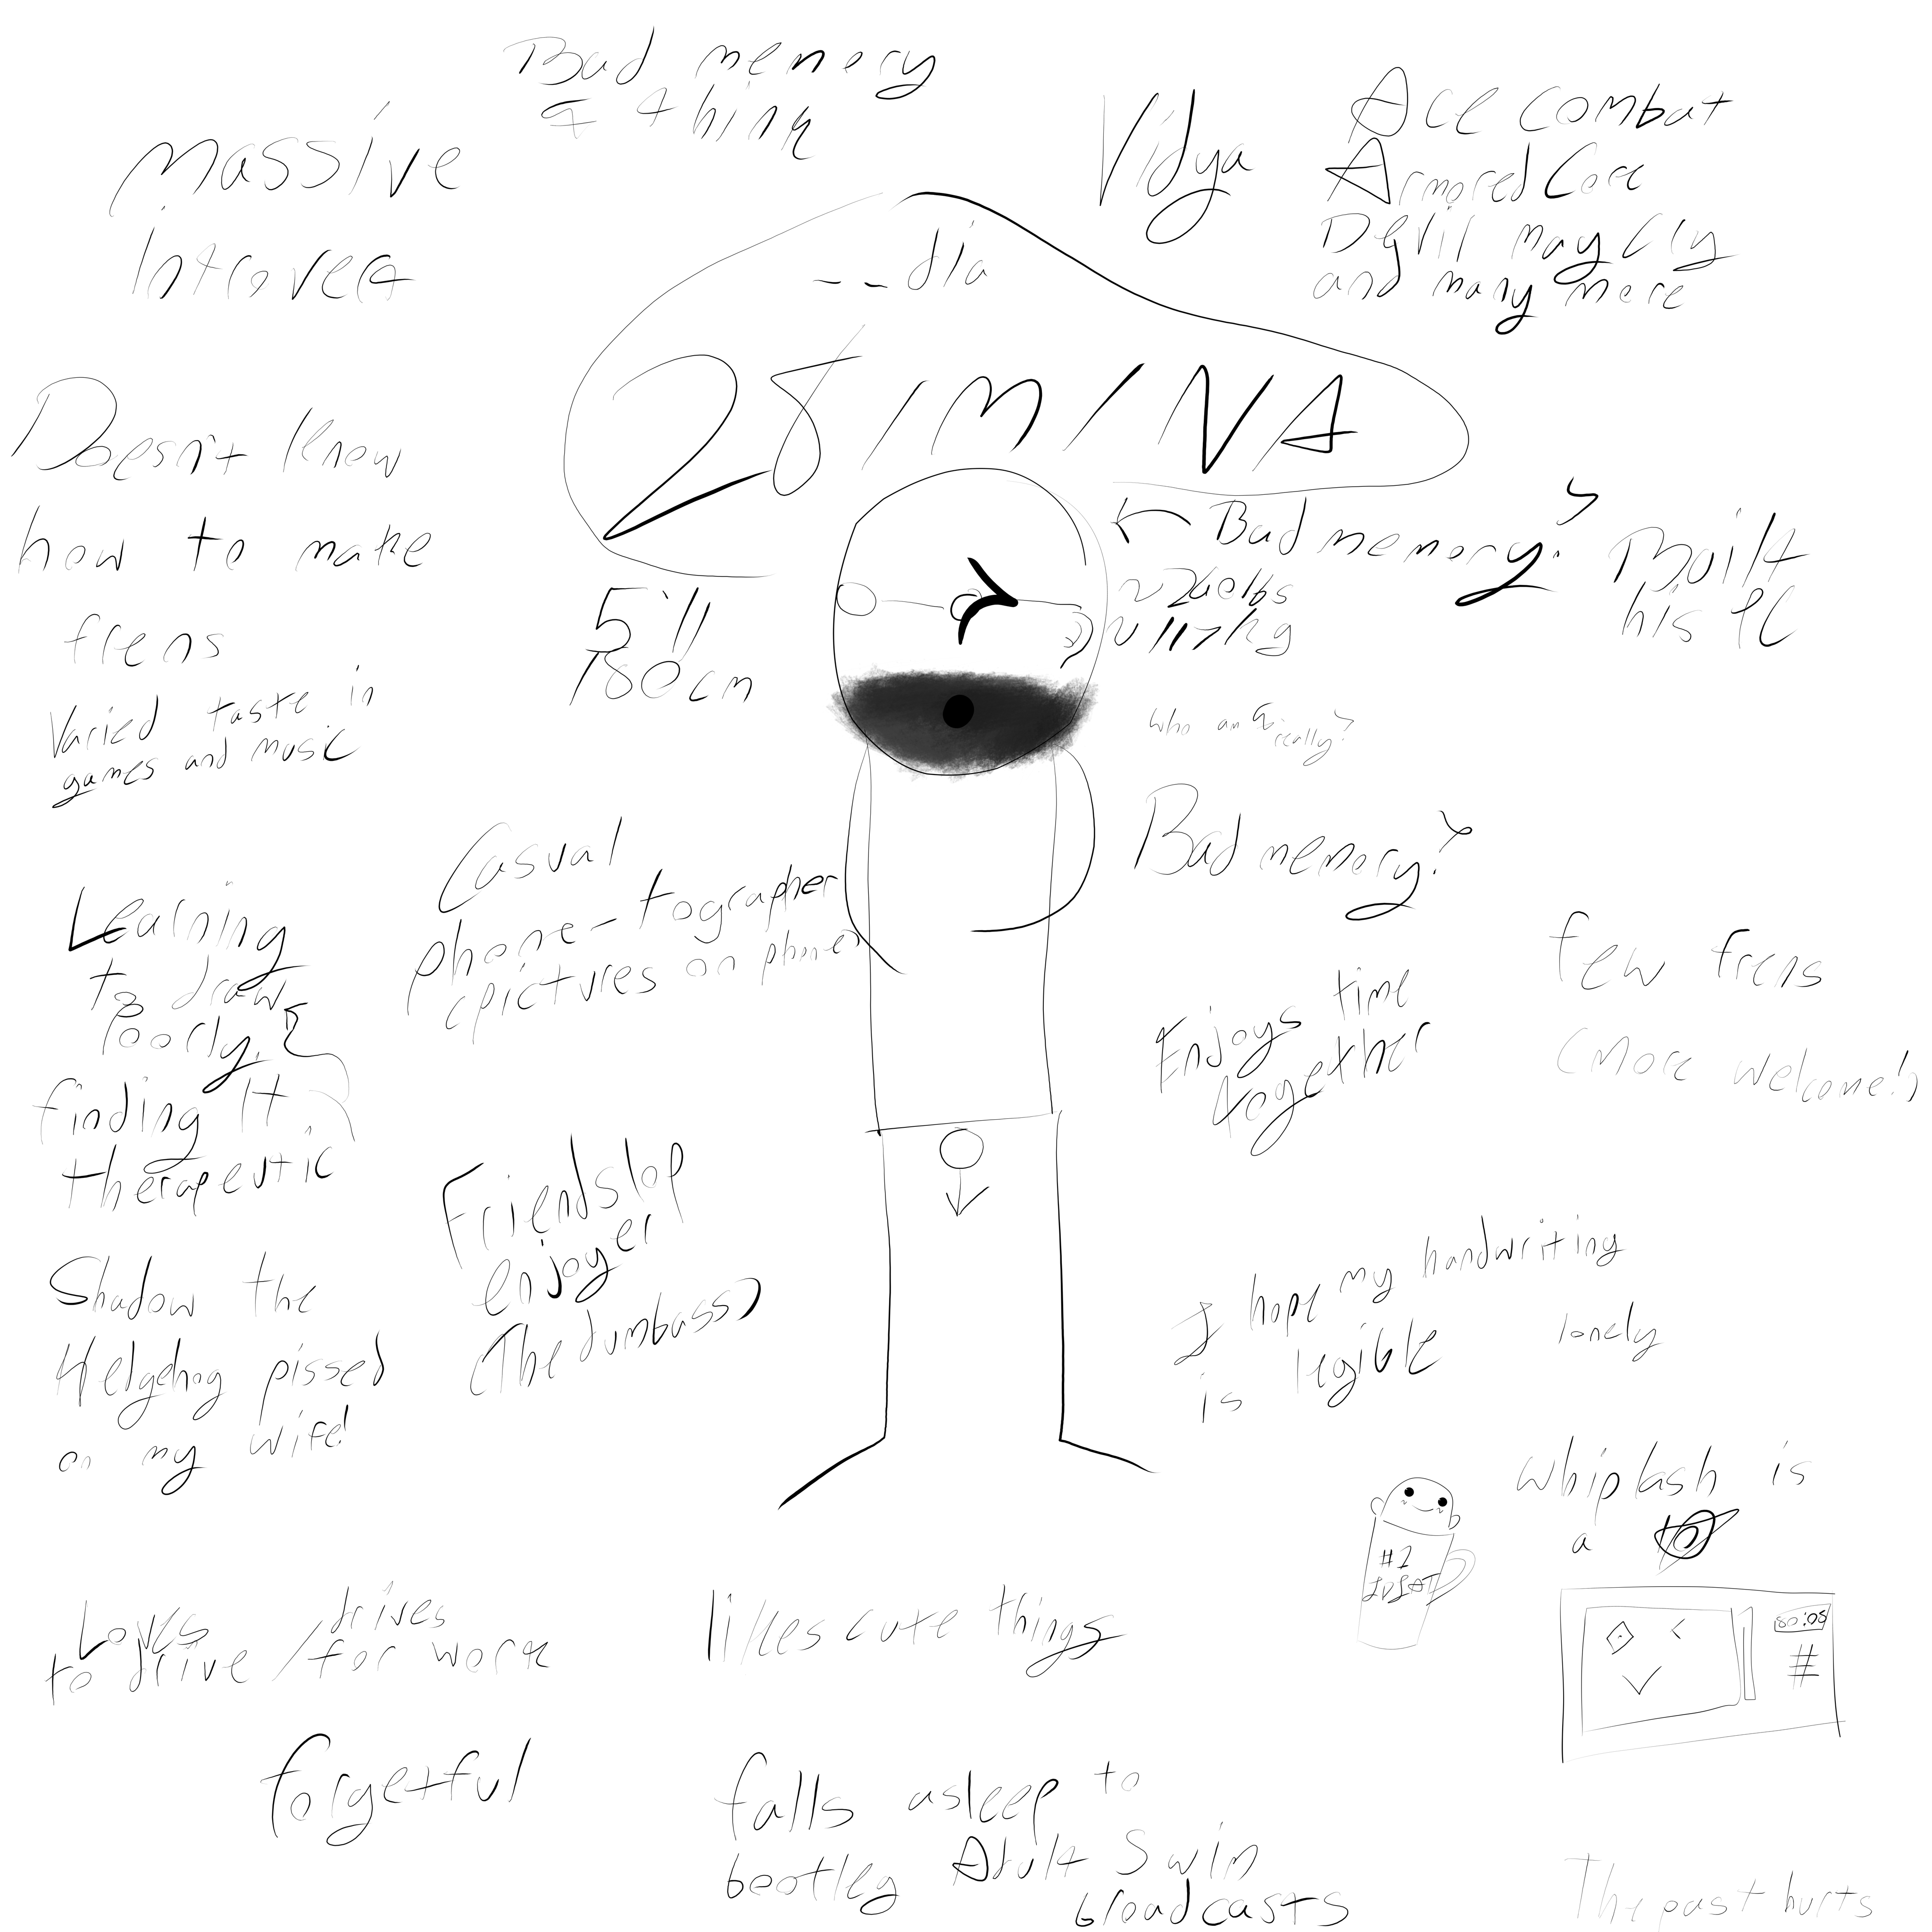 Bad memory
I think
Massive
Introvert
Vidya
Ace Combat
Armored Core
Devil may Cry
and many more
__dia
28/M/NA
Doesn't know
how to make
frens
Varied taste in
games and music
5'11
180cm
Bad memory?
~260lbs
~117kg
Built
his PC
who am I really?
Bad memory?
Casual
phone-tographer
(pictures on phone)
Learning
to draw
Poorly.
finding It
therapeutic
few frens
(more welcome!)
Enjoys time
together
Friendslop
enjoyer
(The dumbass)
Shadow the
Hedgehog pissed
on my wife!
I hope my handwriting
is legible
lonely
whiplash is
a
#1
Loves
to drive / drives
for work
likes cute things
80:08
#
forgetful
falls asleep to
bootleg Adult Swim
broadcasts
The past hurts